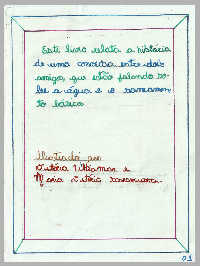 Este livro relata a história
de uma conversa entre dois
amigos, que estão falando so-
bre a água e o saneamen-
to básico.
Ilustrado por
Vitória
Maria Vitória
01